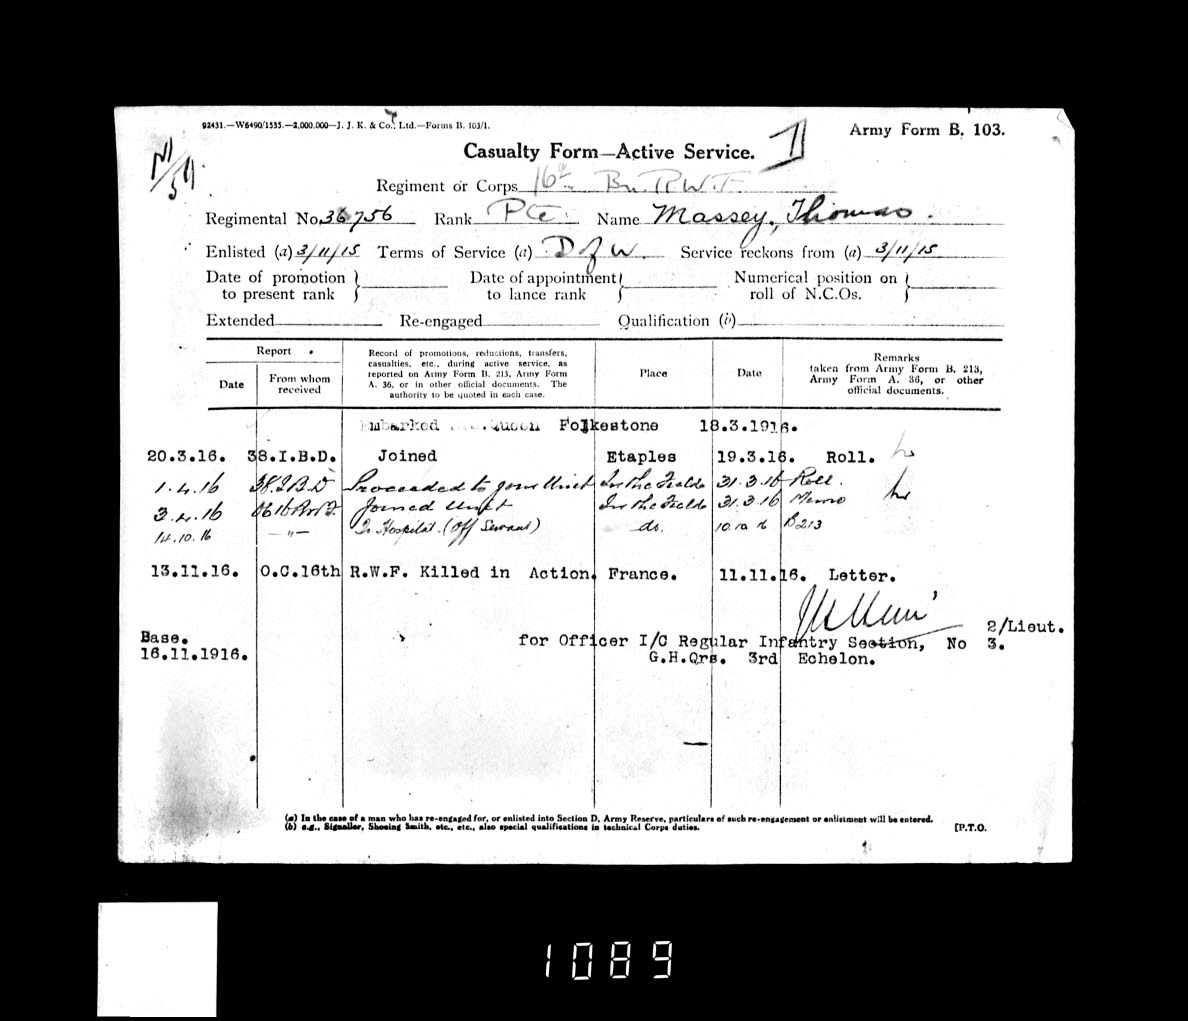 92431.—W6490/1535.—2,000,000—J. J. K. & Co., Ltd.—Forms B. 103/1.
Army Form B. 103.
Casualty Form—Active Service.
Regiment or Corps 16th Bn. R.W.F.
Regimental No. 36756 Rank Pte. Name Massey, Thomas.
Enlisted (a) 3/11/15 Terms of Service (a) D of W. Service reckons from (a) 3/11/15
Date of promotion to present rank
Date of appointment to lance rank
Numerical position on roll of N.C.Os.
Extended Re-engaged Qualification (b)
Report
Date
From whom received
Record of promotions, reductions, transfers, casualties, etc., during active service, as reported on Army Form B. 213, Army Form A. 36, or in other official documents. The authority to be quoted in each case.
Place
Date
Remarks taken from Army Form B. 213, Army Form A. 36, or other official documents.
Embarked Queen Folkestone 18.3.1916.
20.3.16. 38.I.B.D. Joined Etaples 19.3.16. Roll.
1.4.16 38.I.B.D Proceeded to join Unit In the Field 31.3.16 Roll.
3.4.16 OC 16 RWF. Joined Unit In the Field 31.3.16 Memo
14.10.16 —"— To Hospital. (Off Servant) do. 10.10.16 B213
13.11.16. O.C.16th R.W.F. Killed in Action. France. 11.11.16. Letter.
2/Lieut.
Base. for Officer I/C Regular Infantry Section, No 3.
16.11.1916. G.H.Qrs. 3rd Echelon.
(a) In the case of a man who has re-engaged for, or enlisted into Section D, Army Reserve, particulars of such re-engagement or enlistment will be entered.
(b) e.g., Signaller, Shoeing Smith, etc., etc., also special qualifications in technical Corps duties.
[P.T.O.
1089